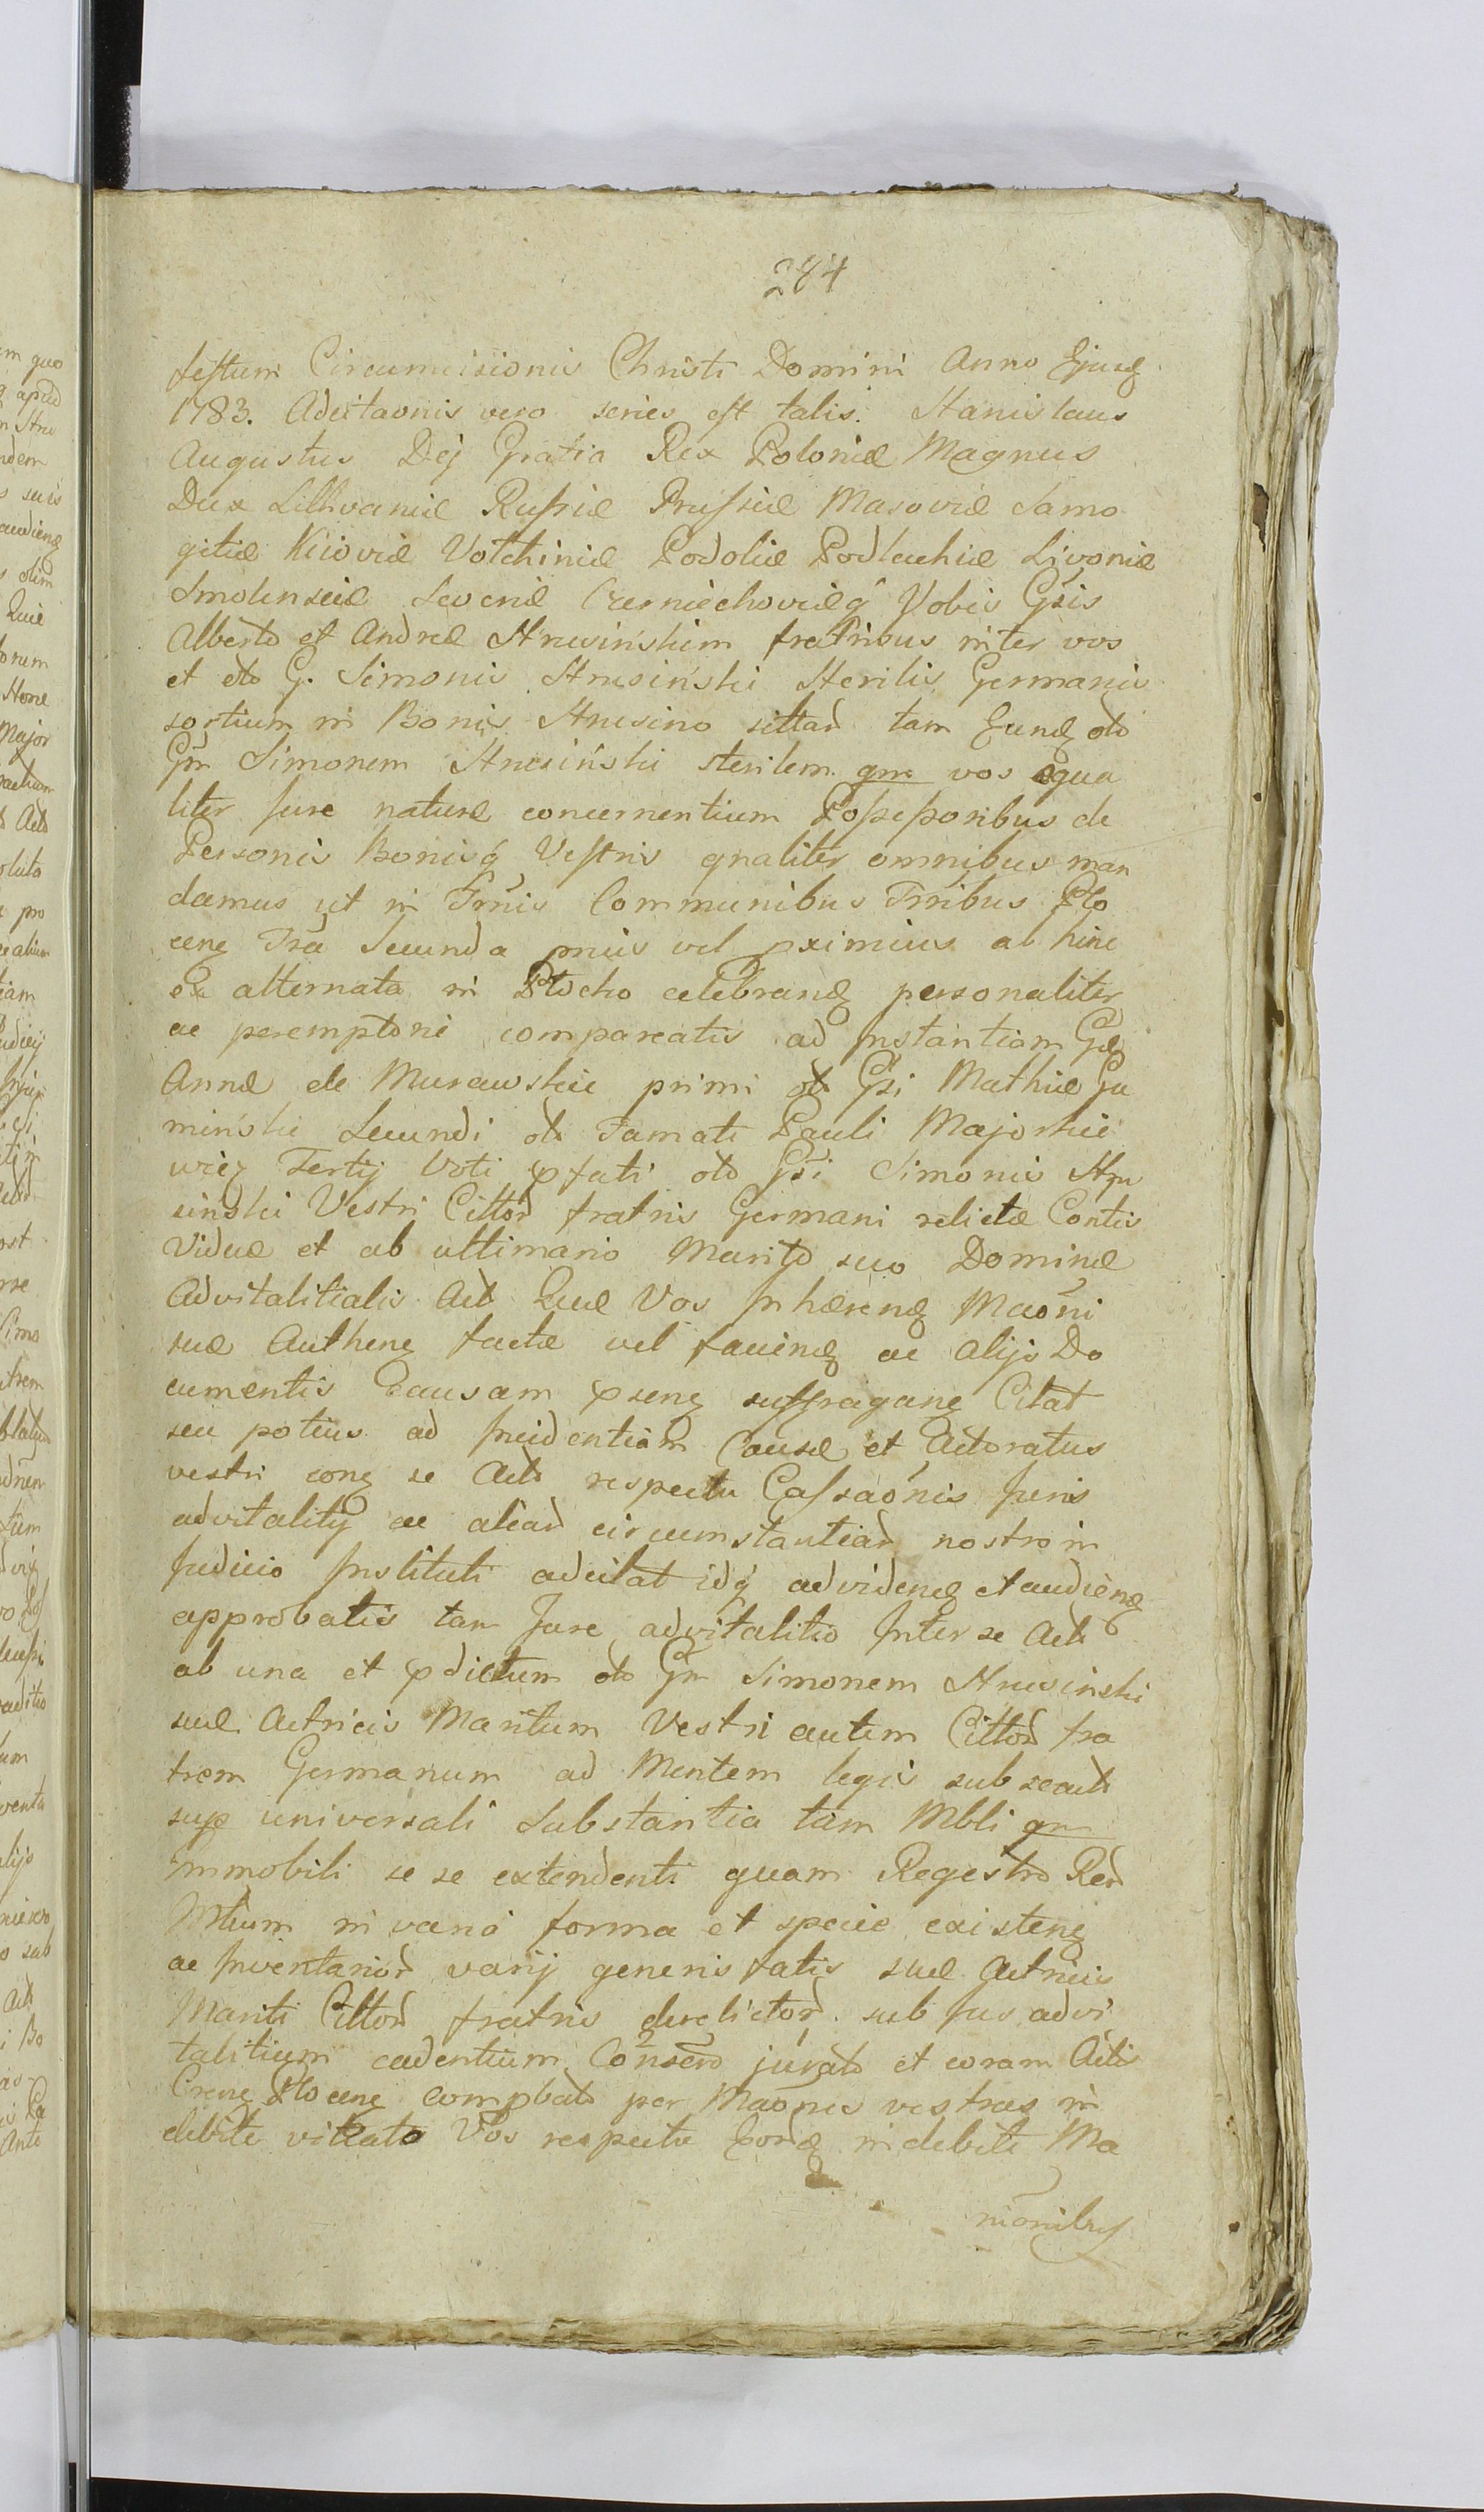 284
festum Circumcisionis Christi Domini Anno Ejusq
1783. Adcitaonis vero series est talis. Stanislaus
Augustus Dej Gratia Rex Poloniæ Magnus
Dux Lithvaniæ Russiæ Prussiæ Masoviæ Samo
gitiæ Kiioviæ Volchiniæ Podoliæ Podlachiæ Livoniæ
Smolensciæ Severiæ Czerniechoviæq Vobis Gsis
Alberto et Andreæ Strusińskim fratribus inter vos
et olo G. Simonis Strusiński Sterilis Germanis
sortium in Bonis Strusino sittar tam Eunq olo
Gm Simonem Strusiński sterilem qm vos Equa
liter Jure naturæ concernentium Possessoribus de
Personis Bonisq Vestris gnaliter omnibus man
damus ut in Trnis Communibus Trribus Plo
cenq Tra Secunda prius vel pximius ab hinc
ex alternata in Plocko celebranq personaliter
ac peremptorie compareatis ad Instantiam Gæ
Annæ de Murawskie primi olo Gsi Mathiæ Gu
miński Secundi olo Famati Pauli Majorkie
wicz Tertij Voti pfati olo Gsi Simonis Stru
sinski Vestri Cittor fratris Germani relictæ Contis
Viduæ et ab ultimario Marito suo Dominæ
Advitalitialis Act Quæ Vos Inhærenq Maoni
suæ Authenq factæ vel faciendq ac alijs Do
cumentis Causam psenq suffraganq Citat
seu potius ad Incidentiam Causæ et Actoratus
vestri conq se Acto respectu Cassaonis Juris
advitalitij ac aliar circumstantiar nostro in
Judicio Instituti adcitat idq advidenq et audienq
approbatis tam Jure advitalitio Inter se Act
ab una et pdictum olo Gm Simonem Strusinski
suæ Actricis Maritum Vestri autem Cittor fra
trem Germanum ad Mentem legis subsecuto
sup universali Substantia tam Mbli qm
immobili se se extendenti quam Regestro Rer
Mbium in varia forma et specie existenq
ac Inventarior varij generis fatis suæ Actricis
Mariti Cittor fratris derelictor sub Jus advi
talitium cadentium Conscro jurato et coram Actis
Crenq Plocenq compbato per Maones vestras in
debite vitiato Vos respectu Eorq indebite Ma
nionibus